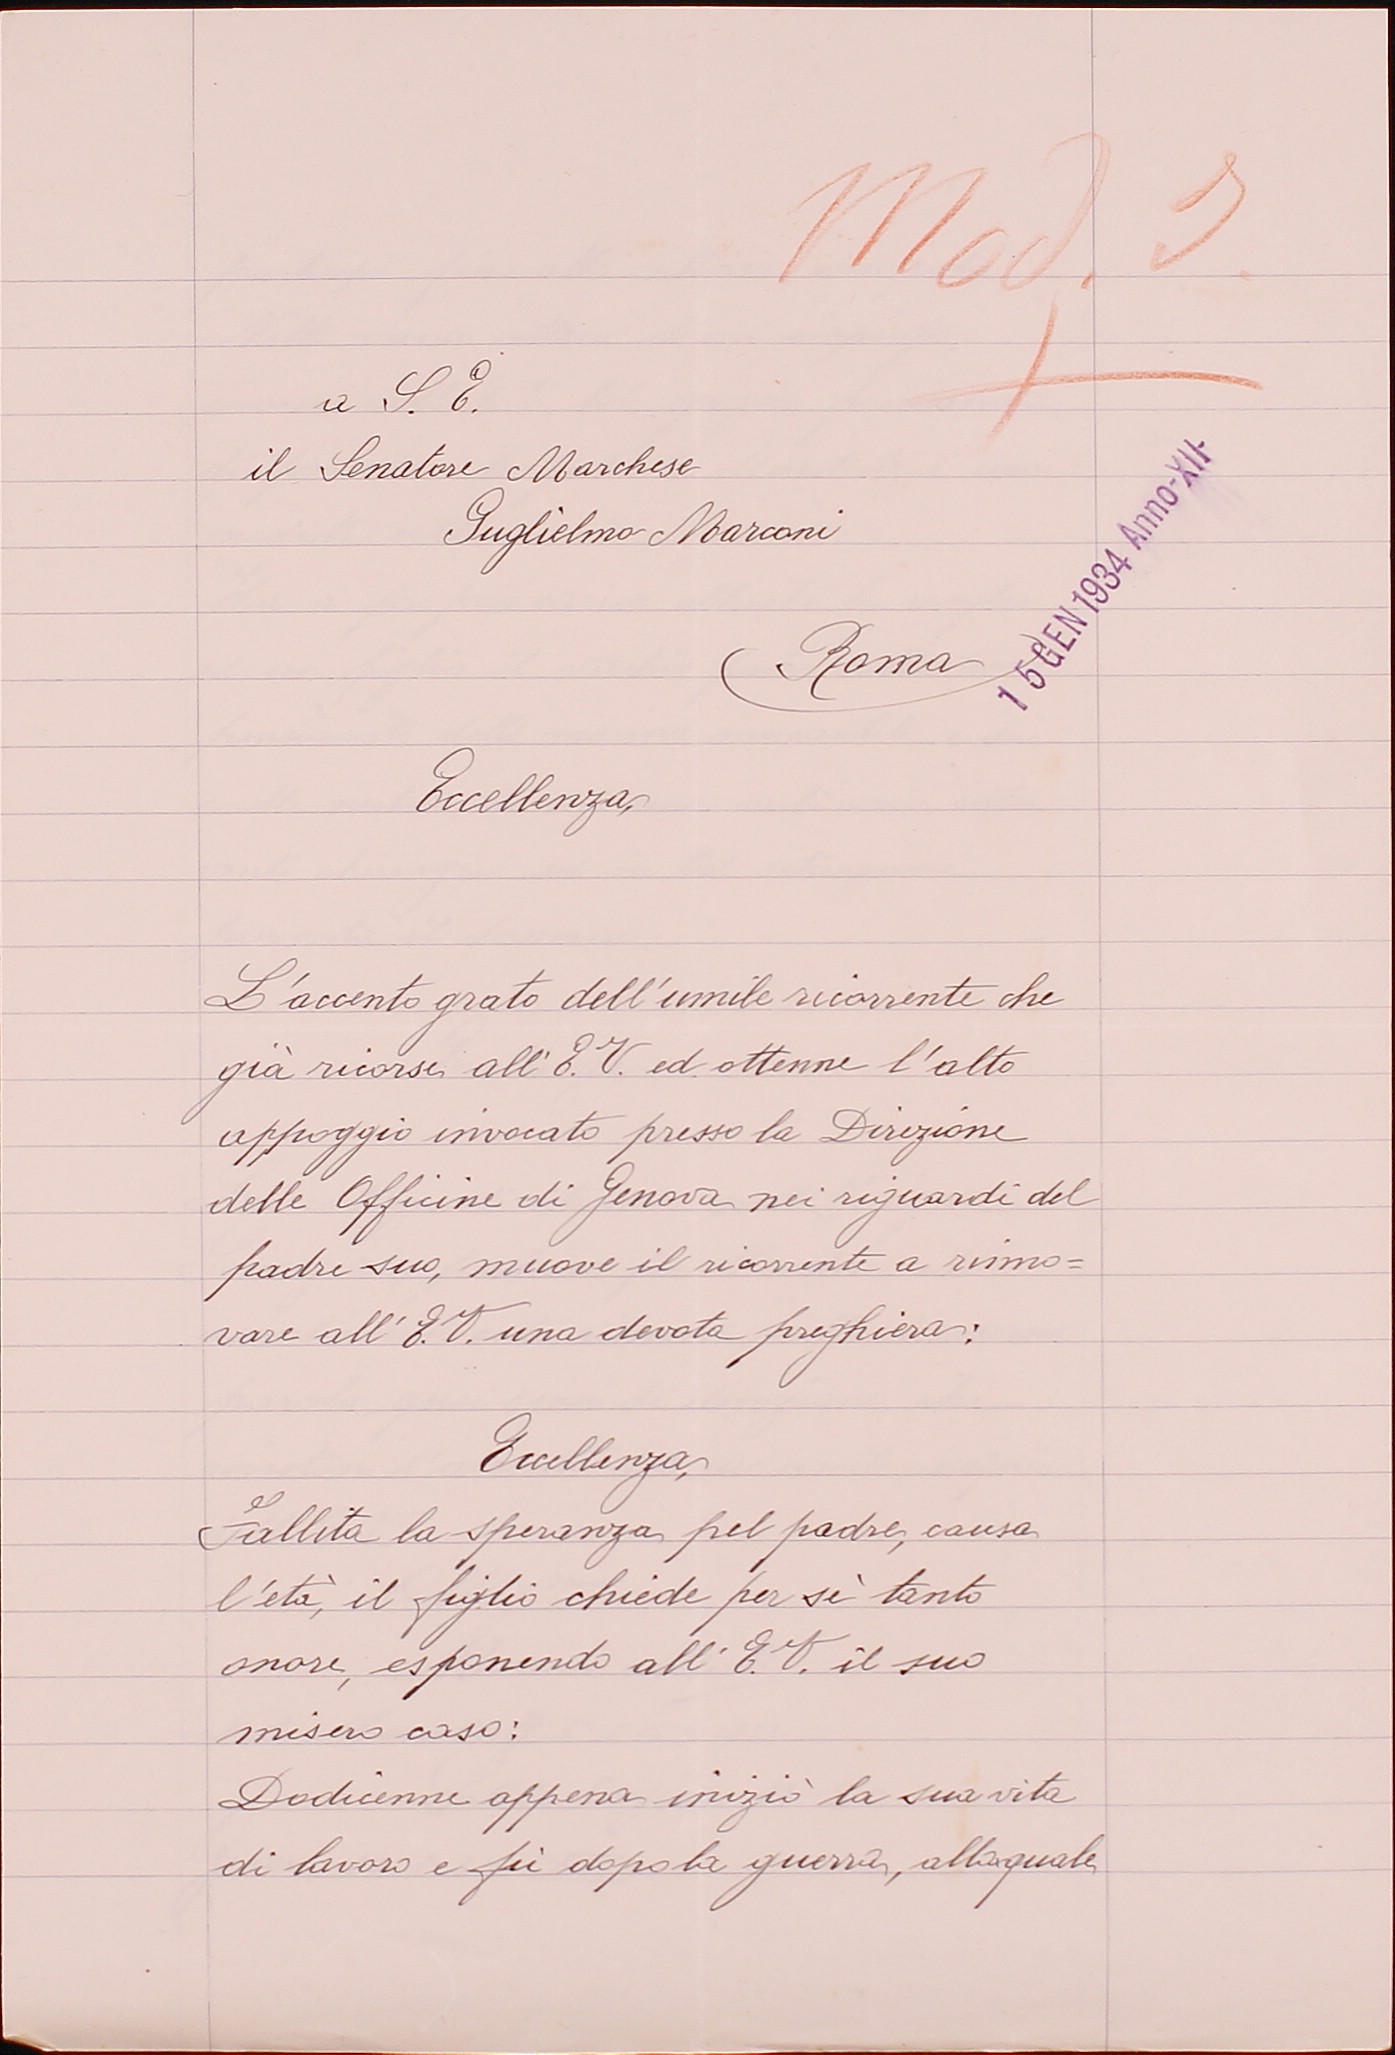 Mod. 9.
a S. E.
il Senatore Marchese
Guglielmo Marconi
15 GEN 1934 Anno-XII-
Roma
Eccellenza,
L'accento grato dell'umile ricorrente che
già ricorse all'E.V. ed ottenne l'alto
appoggio invocato presso la Direzione
delle Officine di Genova nei riguardi del
padre suo, muove il ricorrente a rinno=
vare all'E.V. una devota preghiera:
Eccellenza,
Fallita la speranza pel padre, causa
l'età, il figlio chiede per sè tanto
onore, esponendo all'E.V. il suo
misero caso:
Dodicenne appena iniziò la sua vita
di lavoro e fù dopo la guerra, alla quale